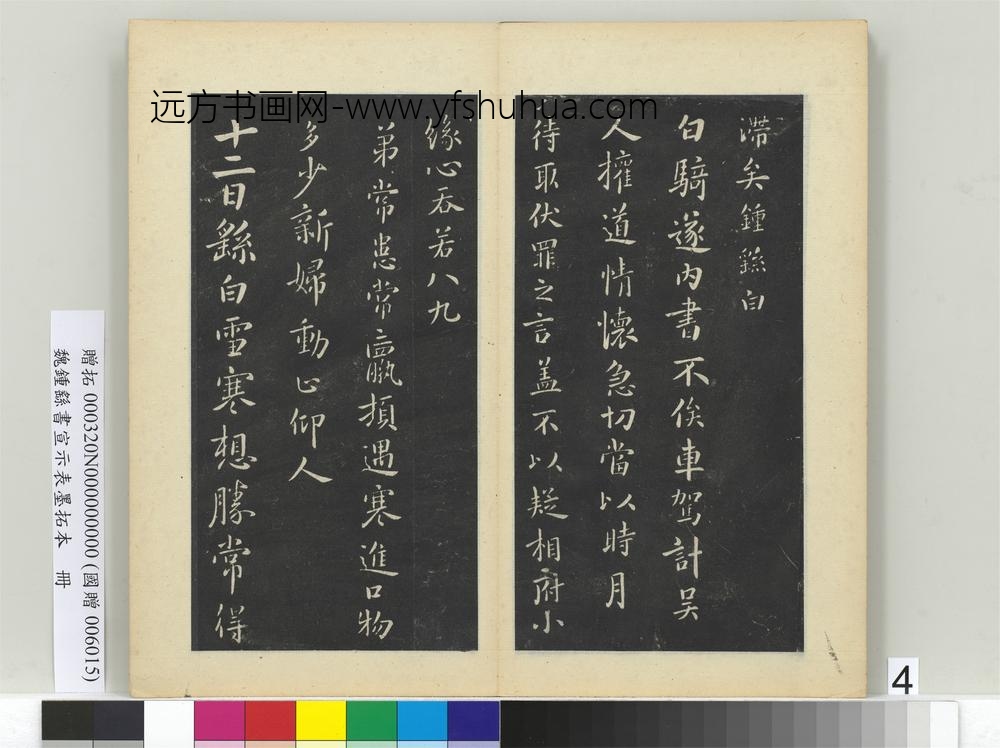 远方书画网-www.yfshuhua.com
滯矣鍾繇白
白騎遂内書不俟車駕計吴
人權道情懷急切當以時月
待取伏罪之言盖不以疑相府小
緣心吞若八九
弟常患常羸頓遇寒進口物
多少新婦動止仰人
十二日繇白雪寒想勝常得
贈拓 000320N000000000 (國贈 006015)
魏鍾繇書宣示表墨拓本 冊
4